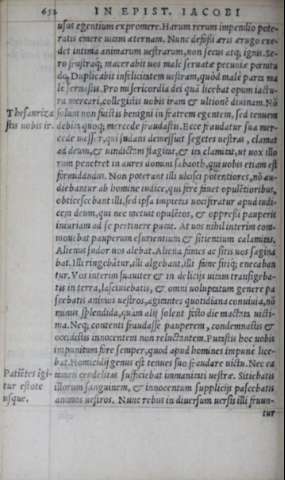 652 IN EPIST. IACOBI
usus egentium expromere. Harum rerum impendio pote-
ratis emere vitam æternam. Nunc defossi æris ærugo exe-
det intima animarum vestrarum, non secus atq; ignis. Se-
ro frustraq; macerabit vos male servatæ pecuniæ pœnitu
do. Duplicabit infelicitatem vestram, quòd male parta ma
le servastis. Pro misericordia dei quã licebat opum iactu-
ra mercari, collegistis vobis iram & ultionẽ divinam. Nõ
Thesauriza
stis vobis ir.
solum non fuistis benigni in fratrem egentem, sed tenuem
debita quoq; mercede fraudastis. Ecce fraudatur sua mer-
cede messor, qui sudans demessuit segetes vestras, clamat
ad deum, & vindictam flagitat, & tis clamitat, ut vox illo
rum penetret in aures domini sabaoth, qui vobis etiam est
formidandus. Non poterant illi ulcisci potentiores, nõ au-
diebantur ab homine iudice, qui fere favet opulẽtioribus,
obticescebant illi, sed ipsa impietas vociferatur apud iudi-
cem deum, qui nec metuit opulẽtos, & oppressi pauperis
iniuriam ad se pertinere putat. At vos nihil interim com-
movebat pauperum esurientium & sitientium calamitas.
Alienus sudor vos alebat. Aliena fames ac sitis vos sagina
bat. Illi ringebãtur, illi algebant, illi fame sitiq; enecaban
tur. Vos interim suaviter & in deliciis vitam transigeba-
tis in terra, lascivebatis, & omni voluptatum genere pa
scebatis animos vestros, agitantes quotidiana convivia, nõ
minus splendida, quam alij solent festo die mactatis victi-
ma. Neq; contenti fraudasse pauperem, condemnastis &
occidistis innocentem non reluctantem. Putastis hoc vobis
impunitum fore semper, quod apud homines impune lice-
bat. Homicidij genus est tenues suo fraudare victu. Nec ea
Patiẽtes igi-
tur estote
usque.
tamen crudelitas sufficiebat immanitati vestræ. Sitiebatis
illorum sanguinem, & innocentum supplicijs pascebatis
animos vestros. Nunc rebus in diversum versis illi fruun-
tur